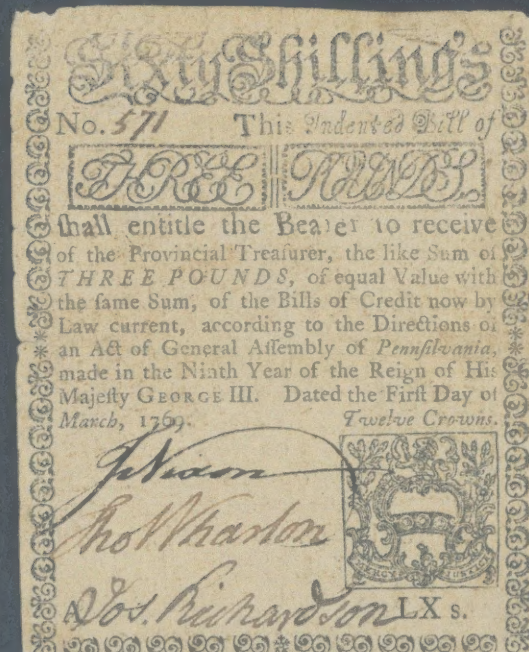 Sixty Shilling's
No. 571 This Indented Bill of
THREE POUNDS.
ſhall entitle the Bearer to receive
of the Provincial Treaſurer, the like Sum of
THREE POUNDS, of equal Value with
the ſame Sum, of the Bills of Credit now by
Law current, according to the Directions of
an Act of General Aſſembly of Pennſilvania,
made in the Ninth Year of the Reign of His
Majeſty GEORGE III. Dated the Firſt Day of
March, 1769. Twelve Crowns.
Jn Nixon
Tho Wharton
MERCY JUSTICE
A Jos. Richardson LX s.